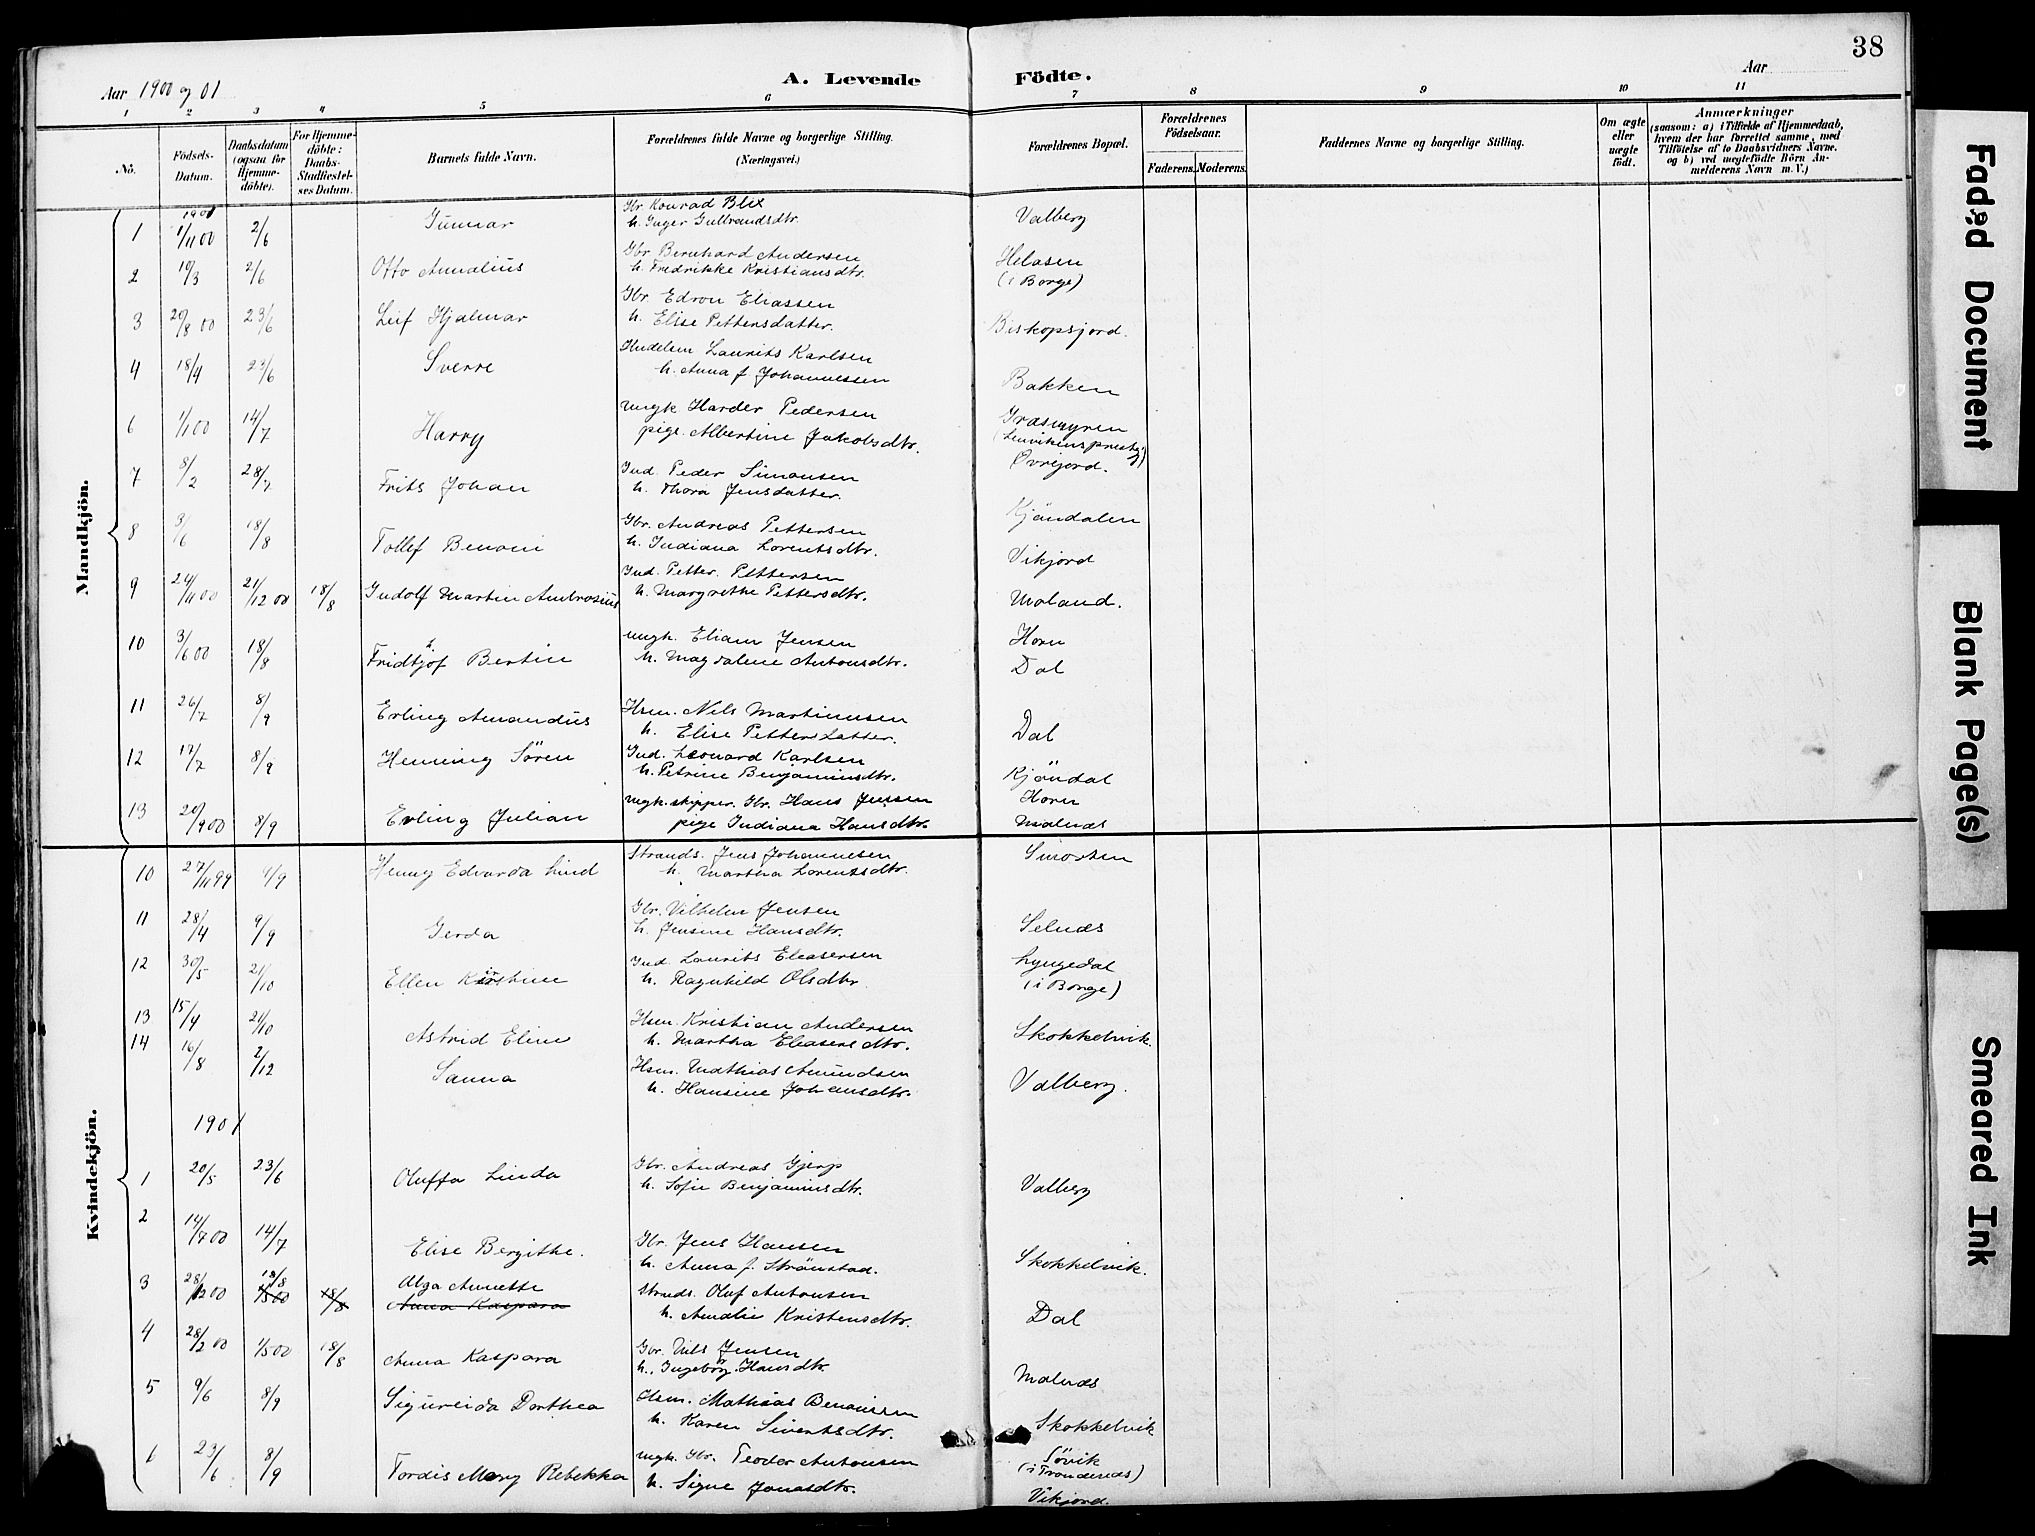 38
Aar 1900 og 01
A. Levende Födte.
Aar
1 2 3 4 5 6 7 8 9 10 11
No.
Födsels-Datum.
Daabsdatum (ogsaa for Hjemmedöbte).
For Hjemmedöbte: Daabs-Stadfæstelses Datum.
Barnets fulde Navn.
Forældrenes fulde Navne og borgerlige Stilling.
(Næringsvei.)
Forældrenes Bopæl.
Forældrenes Födselsaar.
Faderens. Moderens.
Faddernes Navne og borgerlige Stilling.
Om ægte eller uægte födt.
Anmærkninger
(saasom: a) i Tilfælde af Hjemmedaab, hvem der har forrettet samme, med Tilföielse af to Daabsvidners Navne, og b) ved uægtefödte Börn Anmelderens Navn m. V.)
Mandkjön.
1901
1 1/11 00 2/6 Gunnar Gbr Konrad Blix Valberg
h. Inger Gulbrandsdtr.
2 10/3 2/6 Otto Annalius Gbr Bernhard Andersen Helosen
h. Fredrikke Kristiansdtr. (i Borge)
3 20/8 00 23/6 Leif Hjalmar Gbr. Edvon Eliassen
h. Elise Pettersdatter. Biskopsjord.
4 18/4 23/6 Sverre Laurits Karlsen
h. Anna f. Johannessen Bakken
6 1/1 00 14/7 Harry ungk Harder Pedersen Græsmyren
pige. Albertine Jakobsdtr. (Lenvikens prestg)
7 8/2 28/7 Frits Johan Ind. Peder Simonsen Övrejord.
h. Thora Jensdatter.
8 3/6 18/8 Tollef Benoni Gbr. Andreas Pettersen Kjöndalen
h. Indiana Lorentsdtr. Vikjord
9 24/11 00 21/12 00 18/8 Indolf Martin Ambrosius Ind. Petter Pettersen
h. Margrethe Pettersdtr. Moland.
10 3/6 00 18/8 Fridtjof Bertin ungk. Eliam Jensen Horn
h. Magdalene Antonsdtr. Dal
11 26/7 8/9 Erling Amandus Hsm. Nils Martinusen
h. Elise Pettersdatter. Dal
12 17/7 8/9 Henning Sören Ind. Leonard Karlsen
h. Petrine Benjaminsdtr. Kjöndal
13 20/9 00 8/9 Erling Julian ungk. skipper. Gbr. Hans Jensen Horn
pige Indiana Hansdtr. Malnæs
Kvindekjön.
10 27/11 99 9/9 Henny Edvarda Lind Strands. Jens Johannesen Smorten
h. Martha Lorentsdtr.
11 28/4 9/9 Gerda Gbr. Vilhelm Jensen
h. Jensine Hansdtr. Selnæs
12 30/5 21/10 Ellen Kirstine Ind. Laurits Eleasersen Lyngedal
h. Ragnhild Olsdtr (i Borge)
13 15/4 21/10 Astrid Eline Hsm. Kristian Andersen
h. Martha Eleasersdtr. Skokkelvik.
14 16/8 2/12 Sanna Hsm. Mathias Amundsen
h. Hansine Johansdtr. Valberg.
1901
1 20/5 23/6 Oluffa Linda Gbr. Andreas Gjerp
h. Sofie Benjaminsdtr. Valberg
2 14/7 00 14/7 Elise Bergithe. Gbr. Jens Hansen
h. Anna f. Strönstad. Skokkelvik.
3 28/12 00 18/8 Alga Annette strands. Oluf Antonsen
1/5 00 18/8 Anna Kaspara h. Amalie Kristensdtr. Dal
4 28/2 00 1/5 00 18/8 Anna Kaspara Gbr. Nils Jensen
h. Ingeborg Hansdtr. Malnæs
5 9/6 8/9 Sigurida Dorthea Hsm. Mathias Benonisen
h. Karen Sivertsdtr. Skokkelvik
6 23/6 8/9 Tordis Mary Rebekka ungk. Gbr. Teodor Antonsen Sövik
h. Signe Jonasdtr. (i Trondenæs)
Vikjord.
Faded Document
Blank Page(s)
Smeared Ink